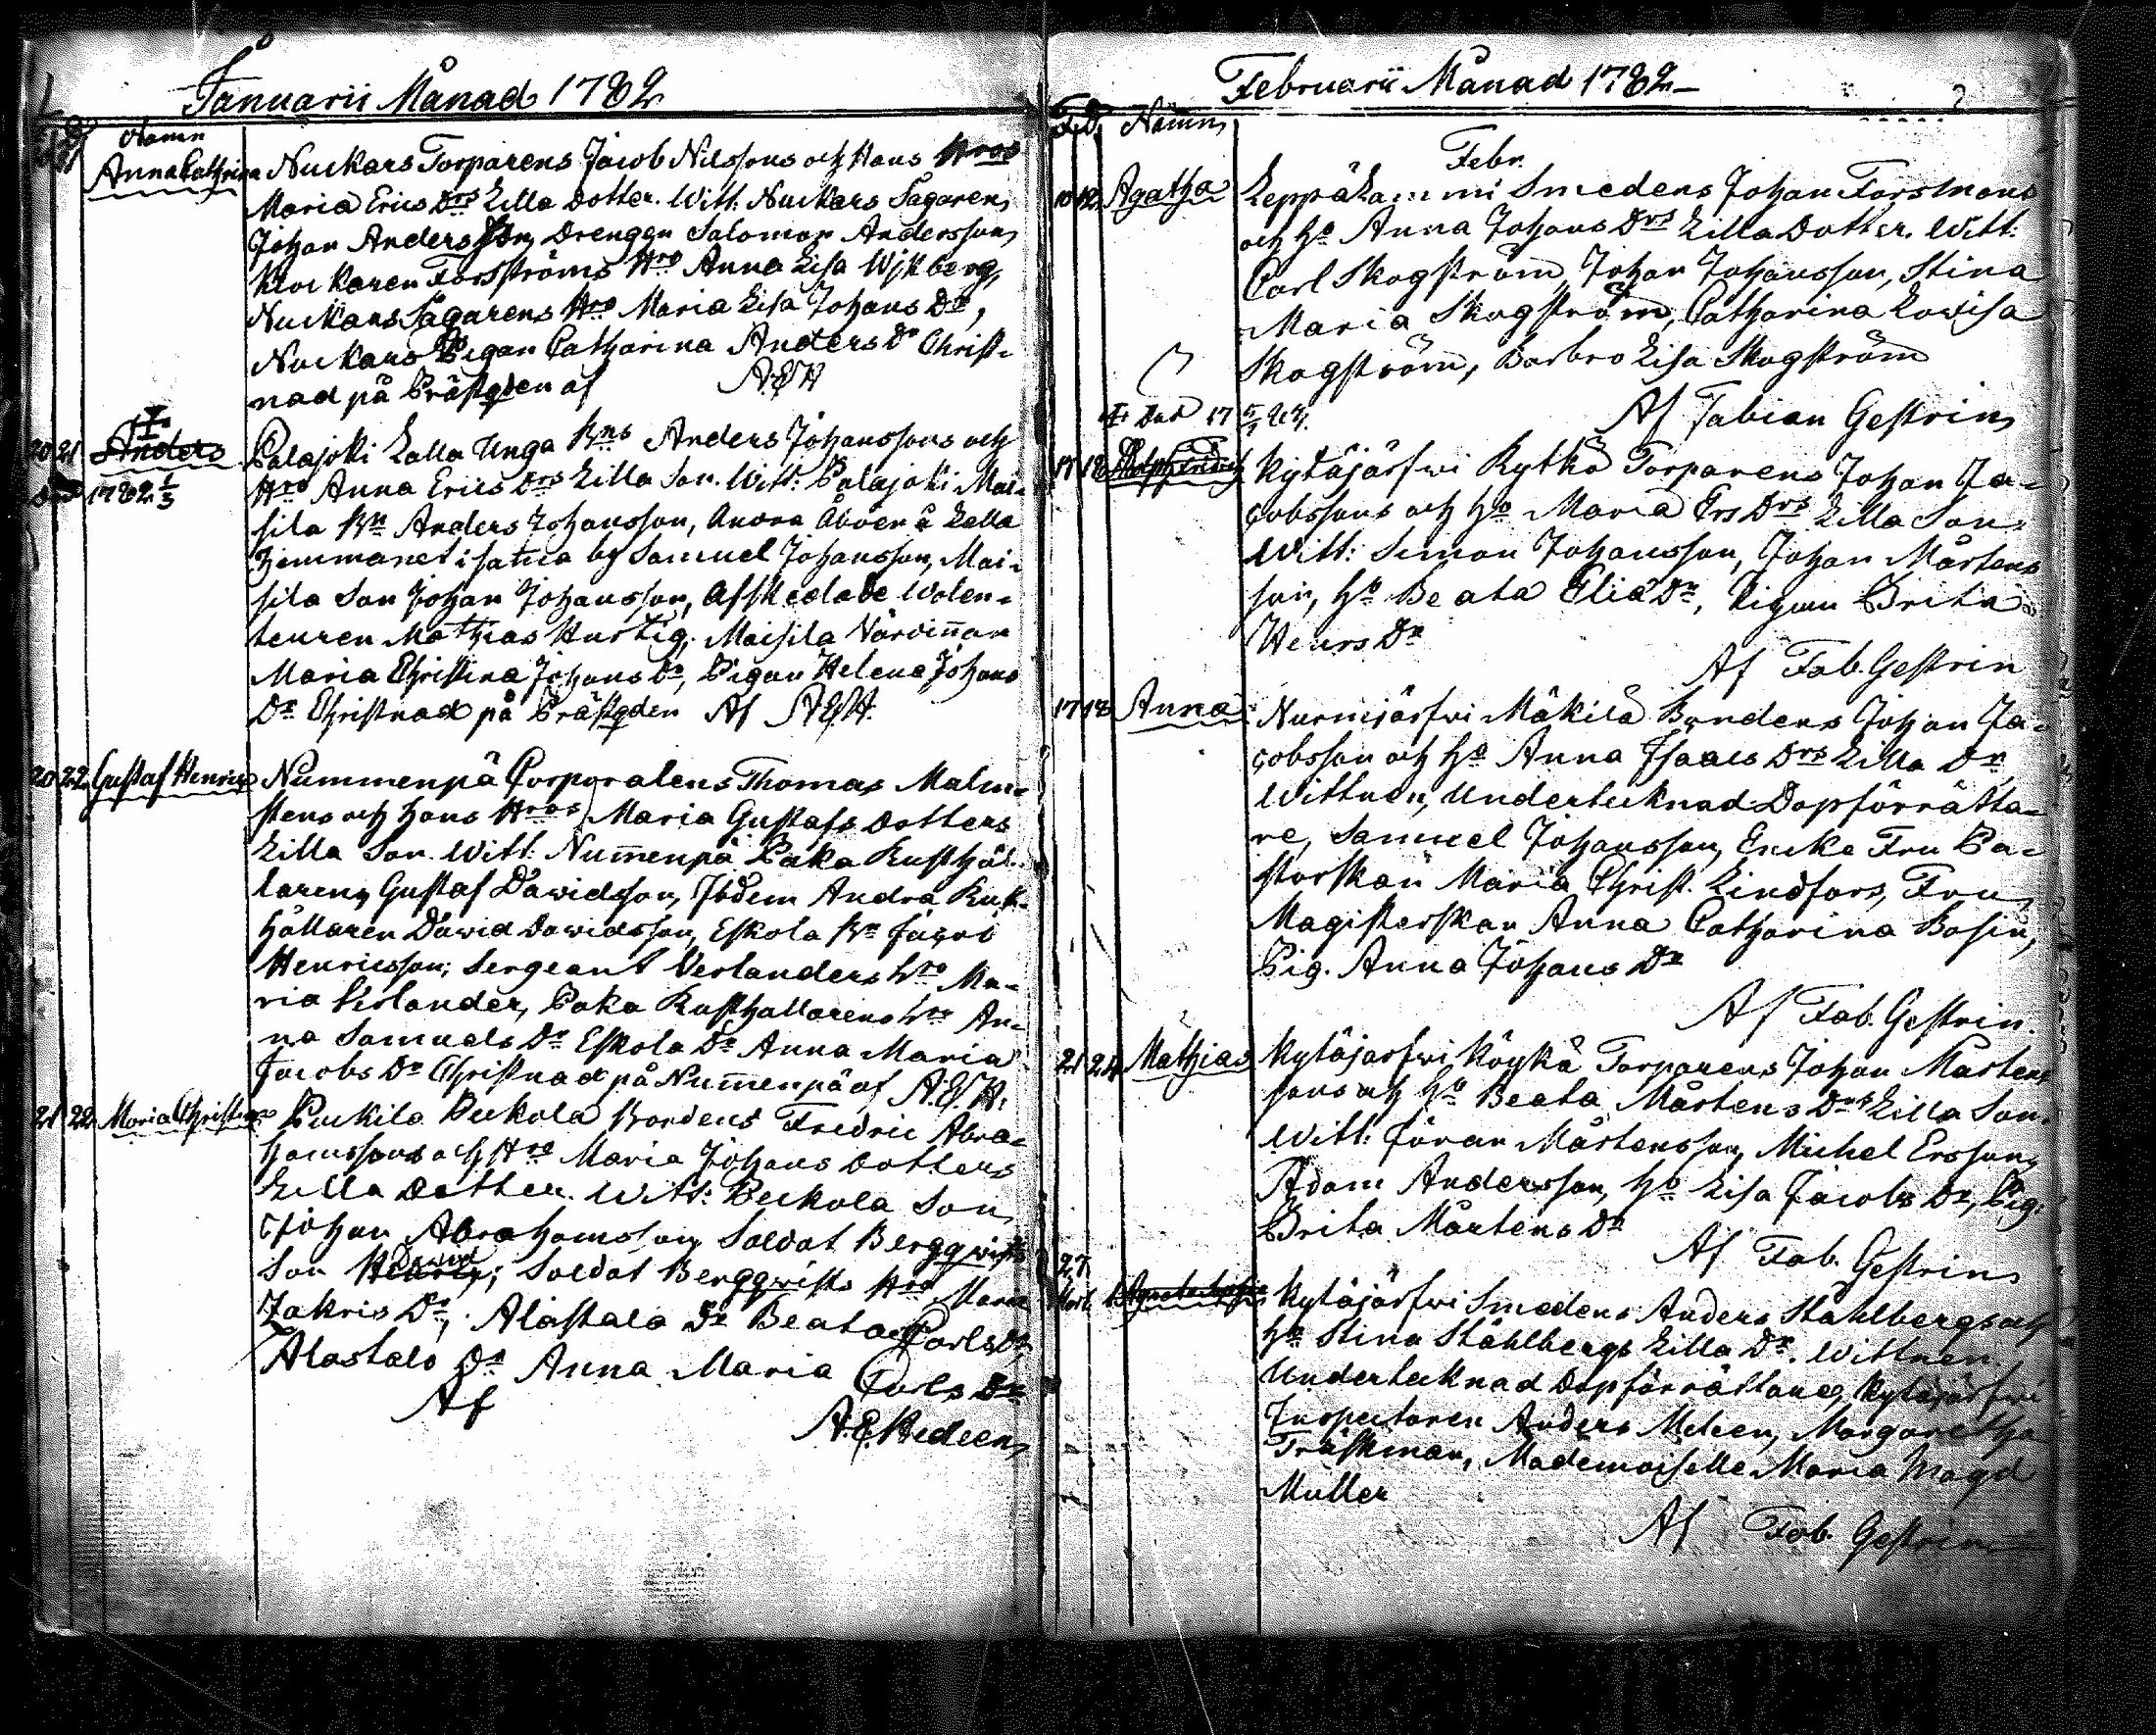 Januarii Månad 1782
Namn
Anna Cathrina Nuckars Torparens Jacob Nilssons och Hans Hros
Maria Erics Drs Ella Dotter. Witt: Nuckars Sågaren
Johan Andersson, Drengen Salomon Andersson,
Klockaren Forsströms Hro Anna Lisa Wikberg,
Nuckars Sågarens Hro Maria Lisa Johans Dr,
Nuckars Pigan Catharina Anders Dr Christ-
nad på Prästgden af A.E.H
20 21 Anders Palajoki Lalla Unga Bns Anders Johanssons och
1782 1/3 Hro Anna Erics Drs Ella Son. Witt: Palajoki Mai-
sila Bn Anders Johansson, Andra Åboen å Lalla
hemmanet i samma by Samuel Johansson, Mai-
sila Son Johan Johansson, Afskedade Wolen-
teuren Mathias Hurtig, Maisila Värdinnan
Maria Christina Johans Dr, Pigan Helena Johans
Dr Christnad på Prästgden Af A.E.H.
20 22 Gustaf Henric Nummenpä Corporalens Thomas Malm-
stens och hans Hros Maria Gustafs Dotters
Ella Son. Witt: Nummenpä Paka Rusthål-
laren Gustaf Dawidsson, Ibdem Andra Rust-
hållaren Dawid Dawidsson, Eskola Bn Jacob
Henricsson; Sergeant Verlanders Hro Ma-
ria Verlander, Paka Rusthållarens Hro An-
na Samuels Dr Eskola Dr Anna Maria
Jacobs Dr Christnad på Nummenpä af A.E.H.
21 22 Maria Christina Puckila Peckola Bondens Fredric Abra-
hamssons och Hro Maria Johans Dotters
Ella Dotter. Witt: Peckola Son
Johan Abrahamsson, Soldat Bergqwists
Son Dawid; Soldat Bergqwists Hro Maria
Zakris Dr, Alastalo Dr Beata Carls Dr,
Alastalo Dr Anna Maria Carls Dr
Af
A.E. Hedeen
Februarii Månad 1782
F. D. Namn
Febr.
10 12 Agatha Leppälammi Smedens Johan Forsmans
och Ho Anna Johans Drs Ella Dotter. Witt:
Carl Skogström, Johan Johansson, Stina
Maria Skogström, Catharina Lovisa
Skogström, Barbro Lisa Skogström
Af Fabian Gestrin
17 18 Kytäjärfwi Kytkö Torparens Johan Ja-
cobssons och Ho Maria Ers Drs Ella Son
Witt: Simon Johansson, Johan Mårtens
son, Ho Beata Elia Dr, Pigan Brita
Henrs Dr
Af Fab. Gestrin
17 18 Anna Nurmijärfwi Mäkilä Bondens Johan Ja-
cobsson och Ho Anna Isaacs Drs Ella Dr
Wittnen, Undertecknad Dopförrätta-
re, Samuel Johansson, Encke Fru Pa-
storskan Maria Christ. Lindfors, Fru
Magisterskan Anna Catharina Bosin,
Pig. Anna Johans Dr
Af Fab. Gestrin.
21 24 Mathias Kytäjärfwi Köykä Torparens Johan Mårtens
sons och Ho Beata Mårtens Drs Ella Son.
Witt: Jöran Mårtensson, Michel Ersson,
Adam Andersson, Ho Lisa Jacobs Dr, Pig.
Brita Mårtens Dr
Af Fab. Gestrin
27
Mart. Kytäjärfwi Smedens Anders Ståhlbergs och
Ho Stina Ståhlbergs Ella Dr. Wittnen.
Undertecknad Dopförrättare, Kytäjärfwi
Inspectoren Anders Meleen, Margaretha
Träskman, Mademoiselle Maria Magd
Muller
Af Fab. Gestrin